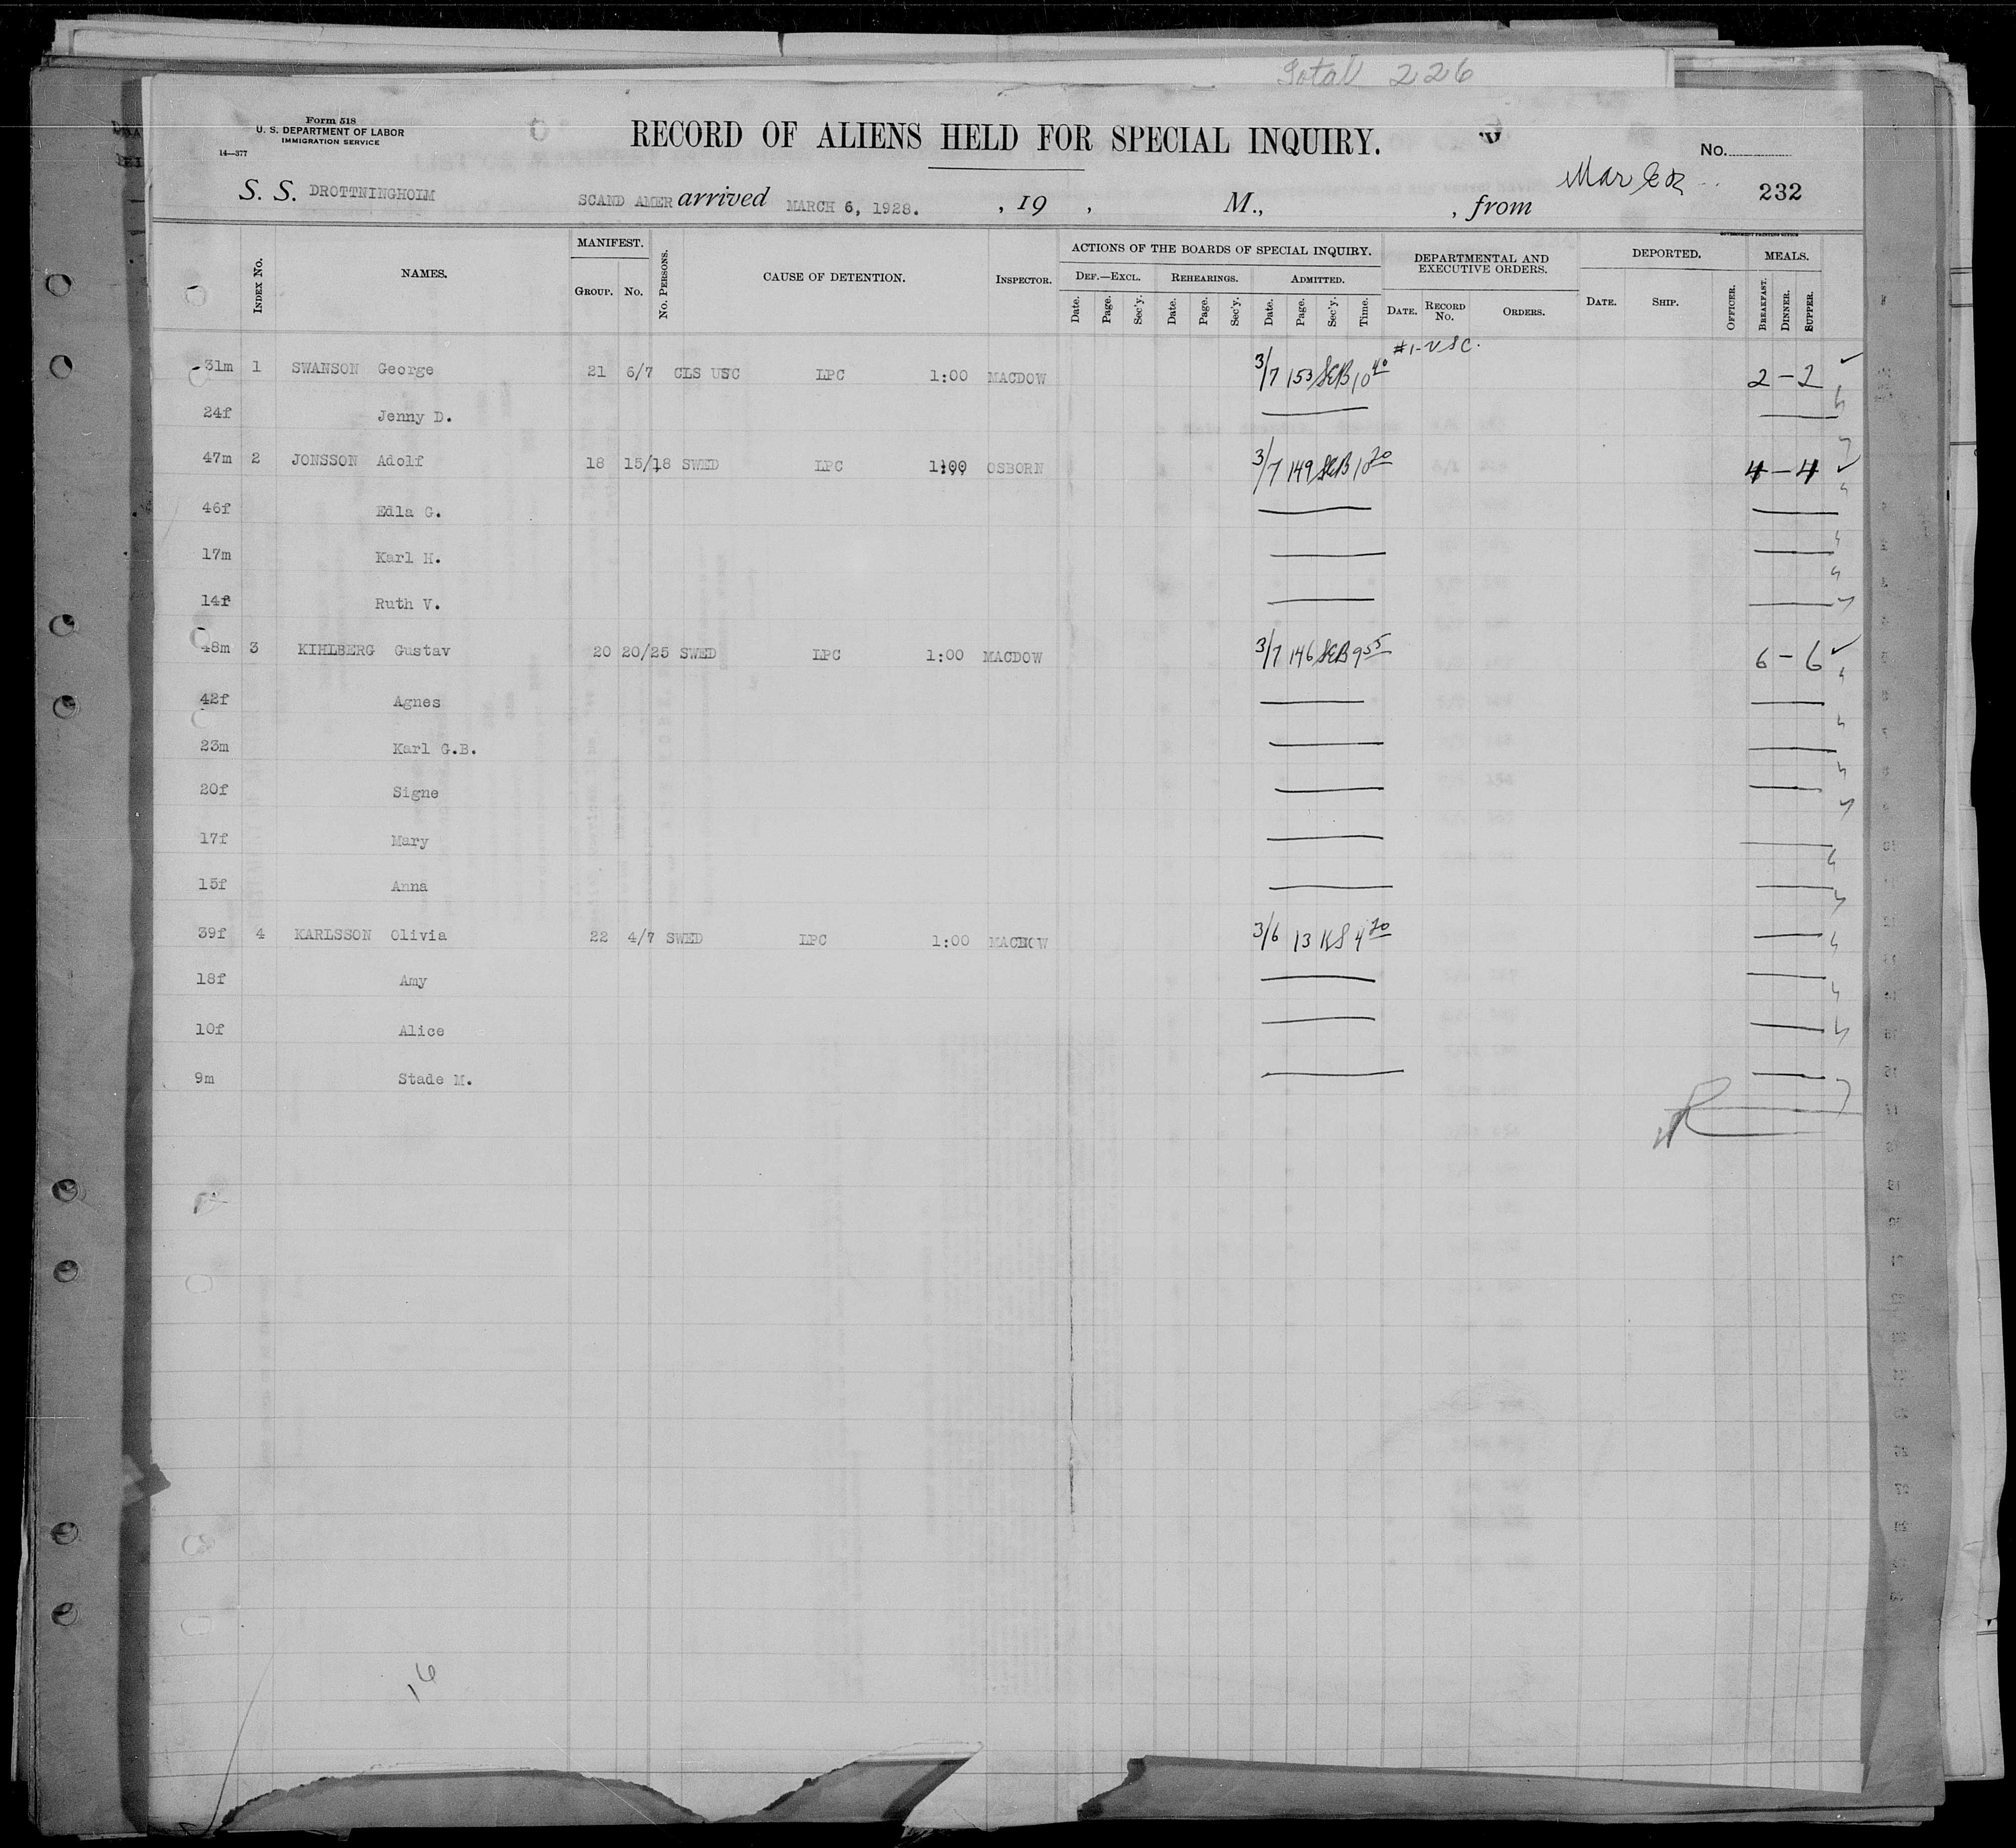 Total 226
Form 518
U. S. DEPARTMENT OF LABOR
IMMIGRATION SERVICE
14—377
RECORD OF ALIENS HELD FOR SPECIAL INQUIRY.
No.
S. S. DROTTNINGHOLM SCAND AMER arrived MARCH 6, 1928. , 19 , M., , from
232
INDEX No. NAMES. MANIFEST. GROUP. No. No. PERSONS. CAUSE OF DETENTION. INSPECTOR. ACTIONS OF THE BOARDS OF SPECIAL INQUIRY. DEPARTMENTAL AND EXECUTIVE ORDERS. DEPORTED. MEALS.
DEF.—EXCL. REHEARINGS. ADMITTED.
Date. Page. Sec'y. Date. Page. Sec'y. Date. Page. Sec'y. Time. DATE. RECORD No. ORDERS. DATE. SHIP. OFFICER. BREAKFAST. DINNER. SUPPER.
GOVERNMENT PRINTING OFFICE
#1-USC.
31m 1 SWANSON George 21 6/7 CLS USC LPC 1:00 MACDOW 3/7 153 SEB 10 40 2 — 2
24f Jenny D.
47m 2 JONSSON Adolf 18 15/18 SWED LPC 1:00 OSBORN 3/7 149 SEB 10 20 4 — 4
46f Edla G.
17m Karl H.
14f Ruth V.
48m 3 KIHLBERG Gustav 20 20/25 SWED LPC 1:00 MACDOW 3/7 146 SEB 9 55 6 — 6
42f Agnes
23m Karl G.B.
20f Signe
17f Mary
15f Anna
39f 4 KARLSSON Olivia 22 4/7 SWED LPC 1:00 MACDOW 3/6 13 KS 4 20
18f Amy
10f Alice
9m Stade M.
16